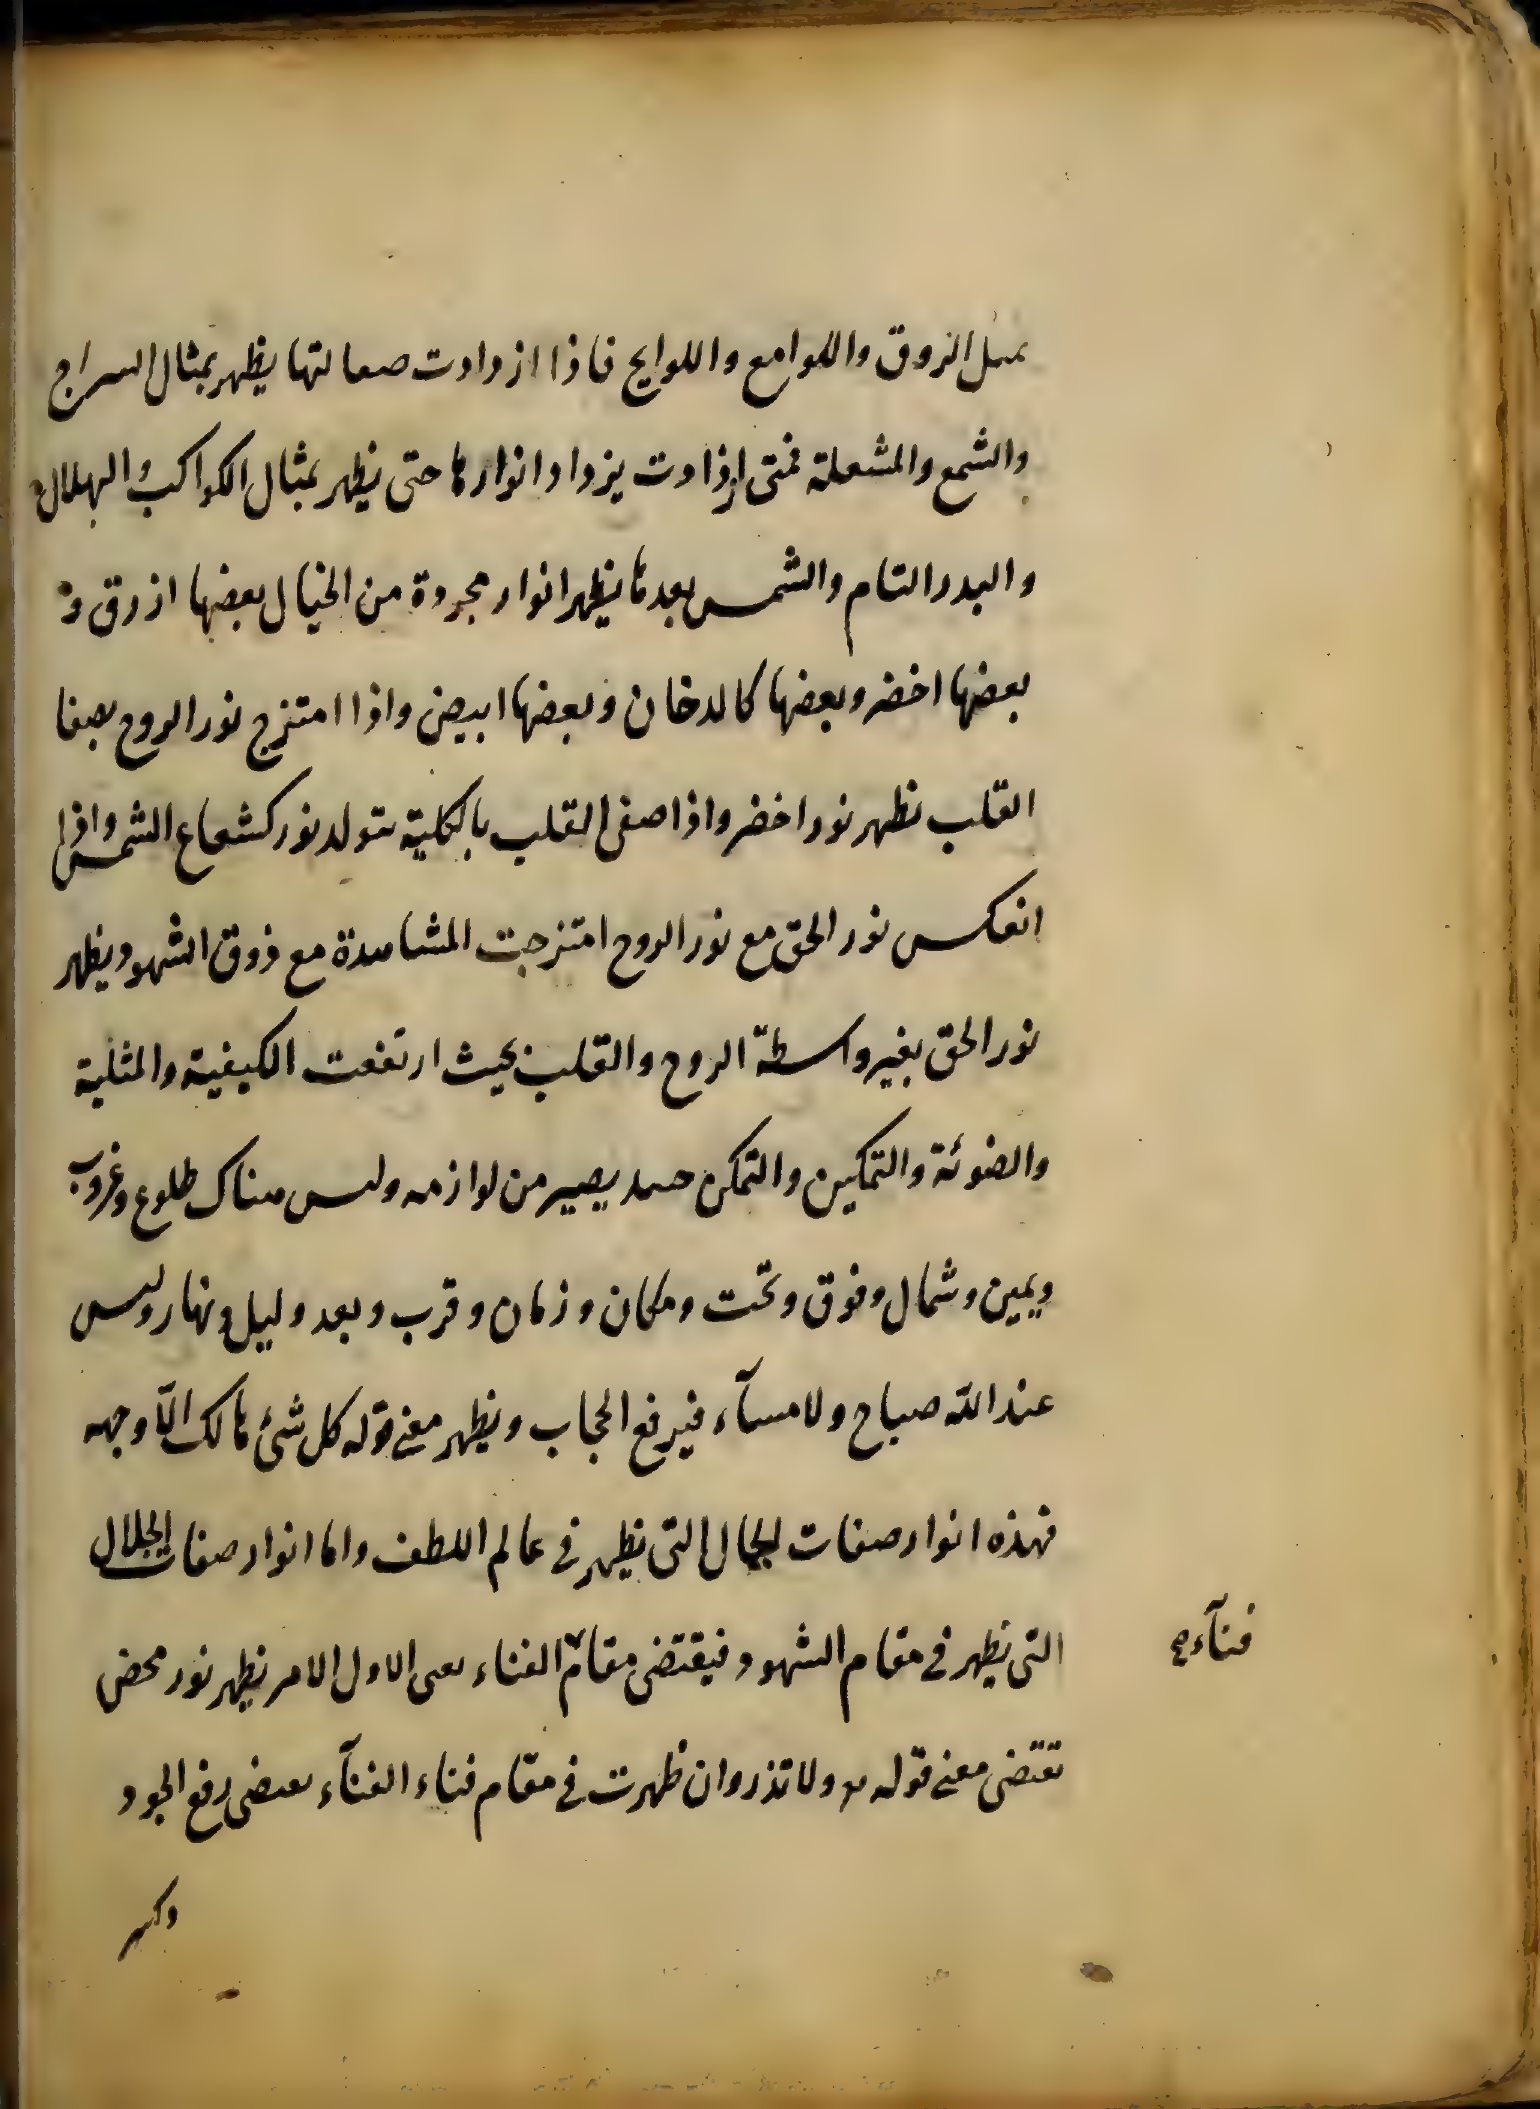 مثل البروق واللوامع واللوايح فاذا ازدادت صقالتها يظهر بمثال السراج
والشمع والمشعلة فمتى ازدادت يزداد انوارها حتى يظهر بمثال الكواكب والهلال
والبدر التام والشمس بعدها يظهر انوار مجردة من الخيال بعضها ازرق و
بعضها اخضر وبعضها كالدخان وبعضها ابيض واذا امتزج نور الروح بصفا
القلب نظهر نور اخضر واذا صفى القلب بالكلية يتولد نور كشعاع الشمس واذا
انعكس نور الحق مع نور الروح امتزجت المشاهدة مع ذوق الشهود يظهر
نور الحق بغير واسطة الروح والقلب بحيث ارتفعت الكيفية والمثلية
والضوئة والتمكين والتمكن يصير من لوازمه وليس هناك طلوع وغروب
ويمين وشمال وفوق وتحت ومكان وزمان وقرب وبعد وليل ونهار وليس
عند الله صباح ولا مسآء فيرفع الحجاب ويظهر معنى قوله كل شئ هالك الّا وجهه
فهذه انوار صفات الجمال التى يظهر فى عالم اللطف واما انوار صفات الجلال
التى يظهر فى مقام الشهود فيقتضى مقام الفناء يعى الاول الامر يظهر نور محض
تقتضى معنى قوله ولا تذر وان ظهرت فى مقام فناء الفنآء يقتضى رفع الجود
فنآء صح